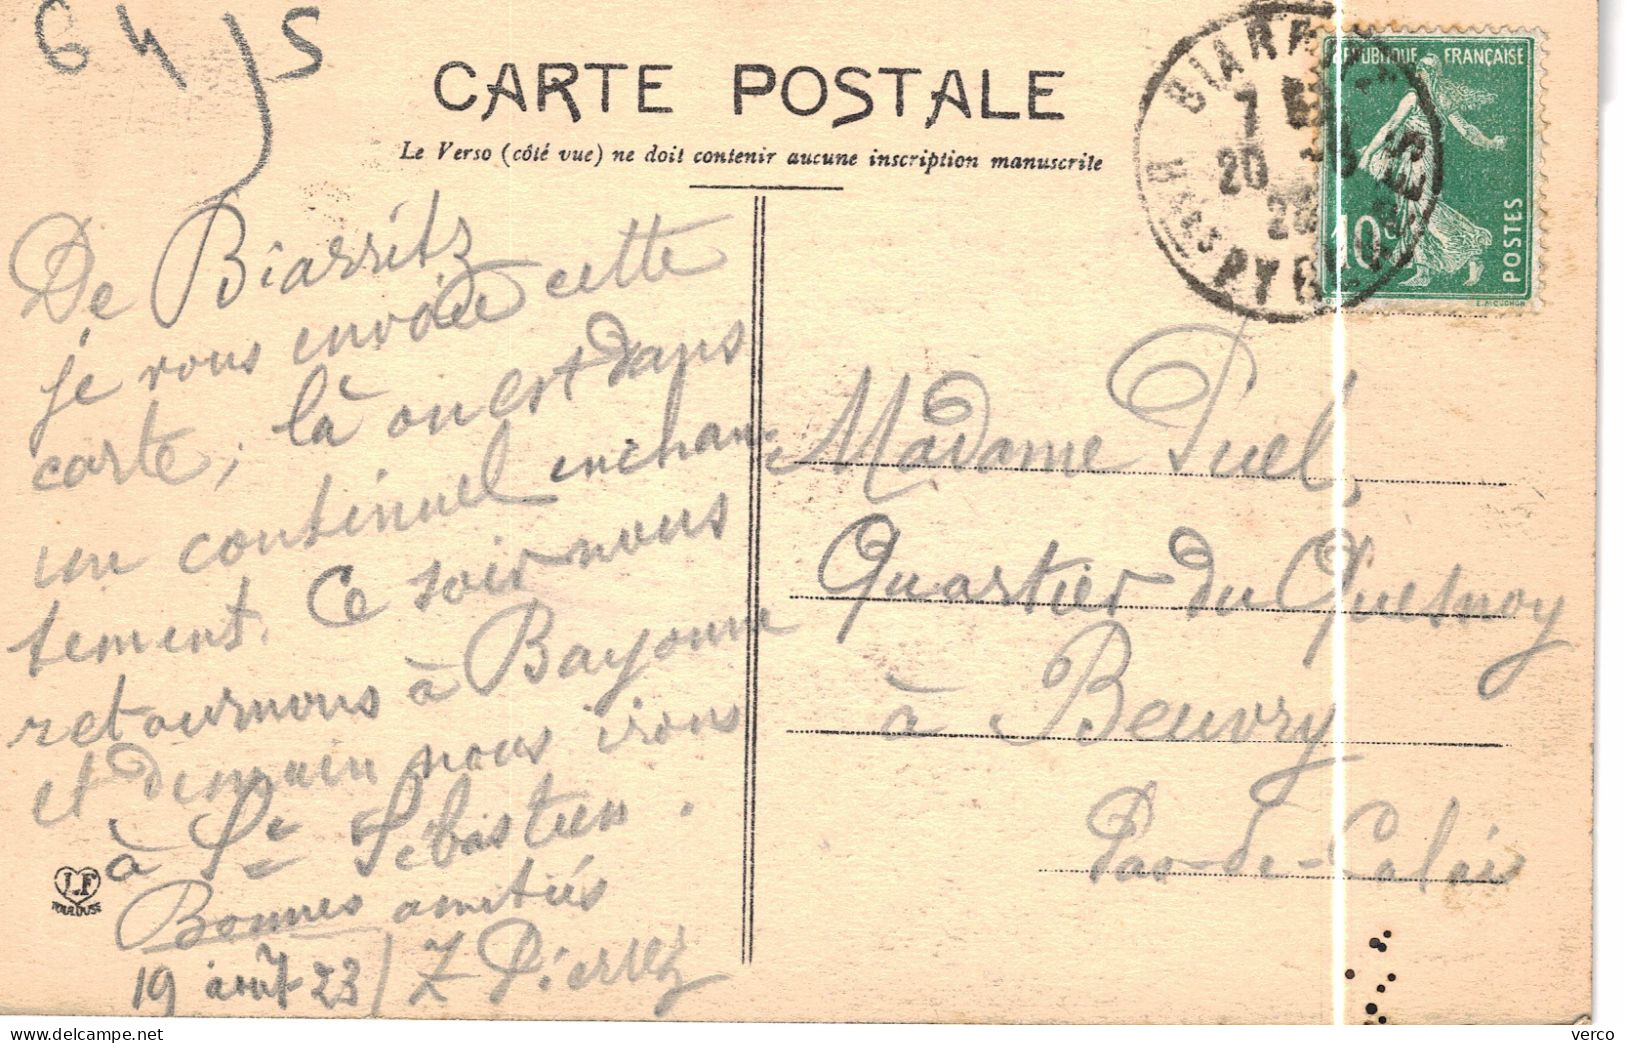 64 S
CARTE POSTALE
Le Verso (côté vue) ne doit contenir aucune inscription manuscrite
RÉPUBLIQUE FRANÇAISE
10c
POSTES
BIARRITZ
7
20 -8
23
BSES PYRENEES
De Biarritz
je vous envoie cette
carte, là on est dans
un continuel enchan-
tement. Ce soir nous
retournons à Bayonne
et demain nous irons
à St Sébastien.
Bonnes amitiés
19 août 23 / Z
Madame Puel,
Quartier du Quesnoy
à Beuvry
Pas-de-Calais
LF
TOULOUSE
verco